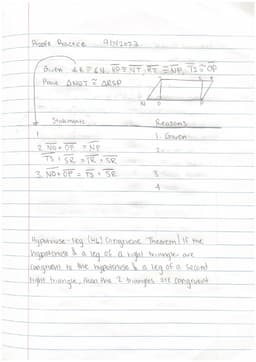 Proofs Practice 9/14/2022
Given ∠R ≅ ∠N, RT ≅ NP, TS ≅ OP
Prove △NOT ≅ △RSP
N O P
Statements Reasons
1. 1. Given
2. NO + OP = NP 2.
TS + SR = TR + SR
3. NO + OP = TS + SR 3
4
Hypotenuse-leg (HL) Congruence Theorem: If the
hypotenuse & a leg of a right triangle are
congruent to the hypotenuse & a leg of a second
right triangle, then the 2 triangles are congruent